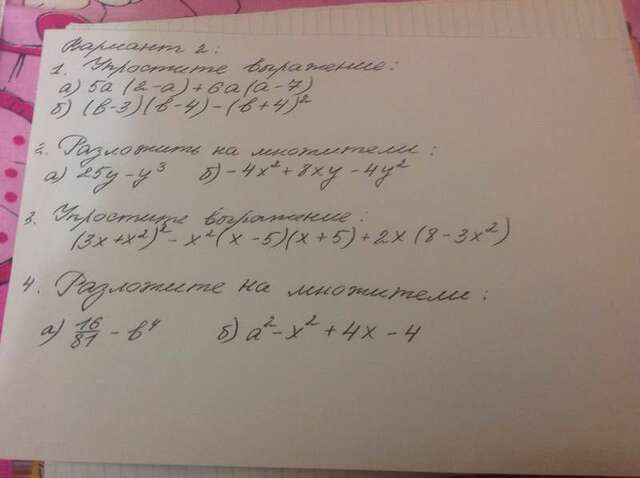 Вариант 2:
1. Упростите выражение:
а) 5а (2-а)+6а(а-7)
б) (в-3)(в-4)-(в+4)²
2. Разложить на множители:
а) 25у-у³ б) -4х²+8ху-4у²
3. Упростите выражение:
(3х+х²)²-х²(х-5)(х+5)+2х(8-3х²)
4. Разложите на множители:
а) 16/81 - в⁴ б) а²-х²+4х-4